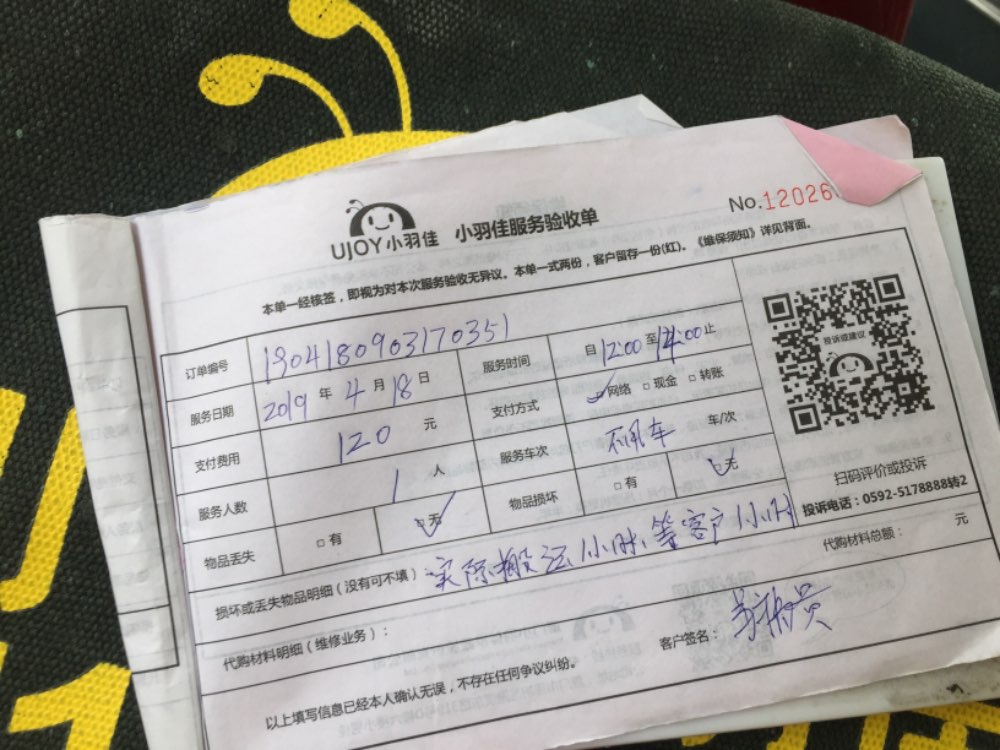 No.12026
UJOY小羽佳 小羽佳服务验收单
本单一经核签，即视为对本次服务验收无异议。本单一式两份，客户留存一份(红)。《维保须知》详见背面。
订单编号 1904180903170351 服务时间 自 12:00 至 14:00 止
服务日期 2019 年 4 月 18 日 支付方式 网络 □ 现金 □ 转账
支付费用 120 元 服务车次 不用车 车/次
服务人数 1 人 物品损坏 □ 有 □ 无
物品丢失 □ 有 □ 无
投诉或建议
扫码评价或投诉
投诉电话：0592-5178888转2
损坏或丢失物品明细（没有可不填） 实际搬运1小时、等客户1小时
代购材料明细（维修业务）： 代购材料总额： 元
以上填写信息已经本人确认无误，不存在任何争议纠纷。 客户签名：